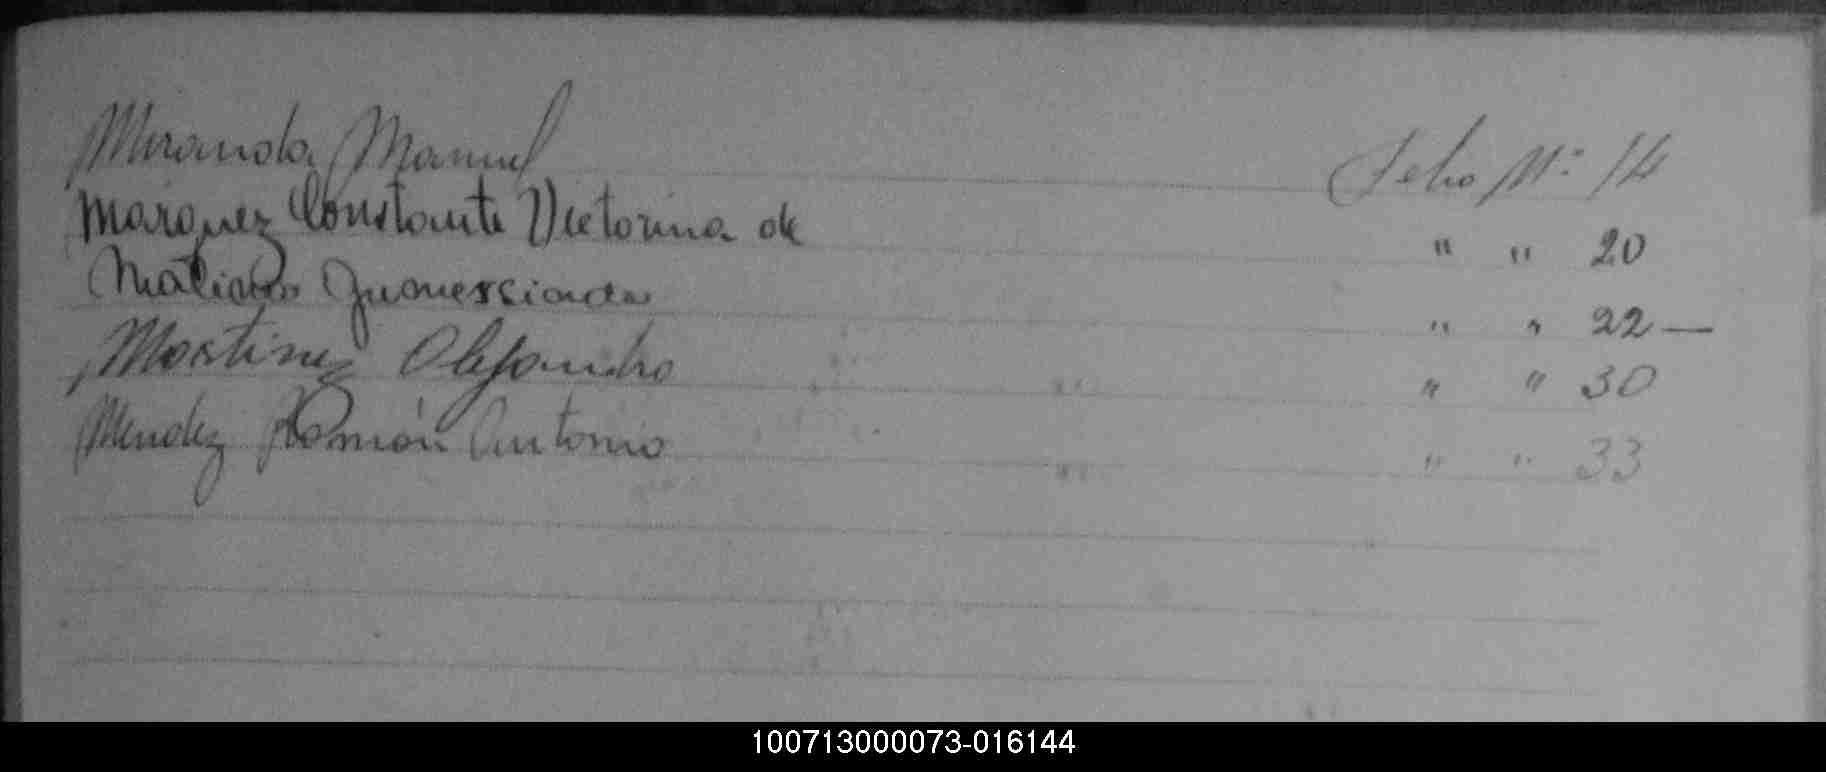 Miranda Manuel Folio Nº 14
Marquez Constante Victorina de " " 20
" " 22 —
Martinez Alejandro " " 30
Mendez Ramón Antonio " " 33
100713000073-016144